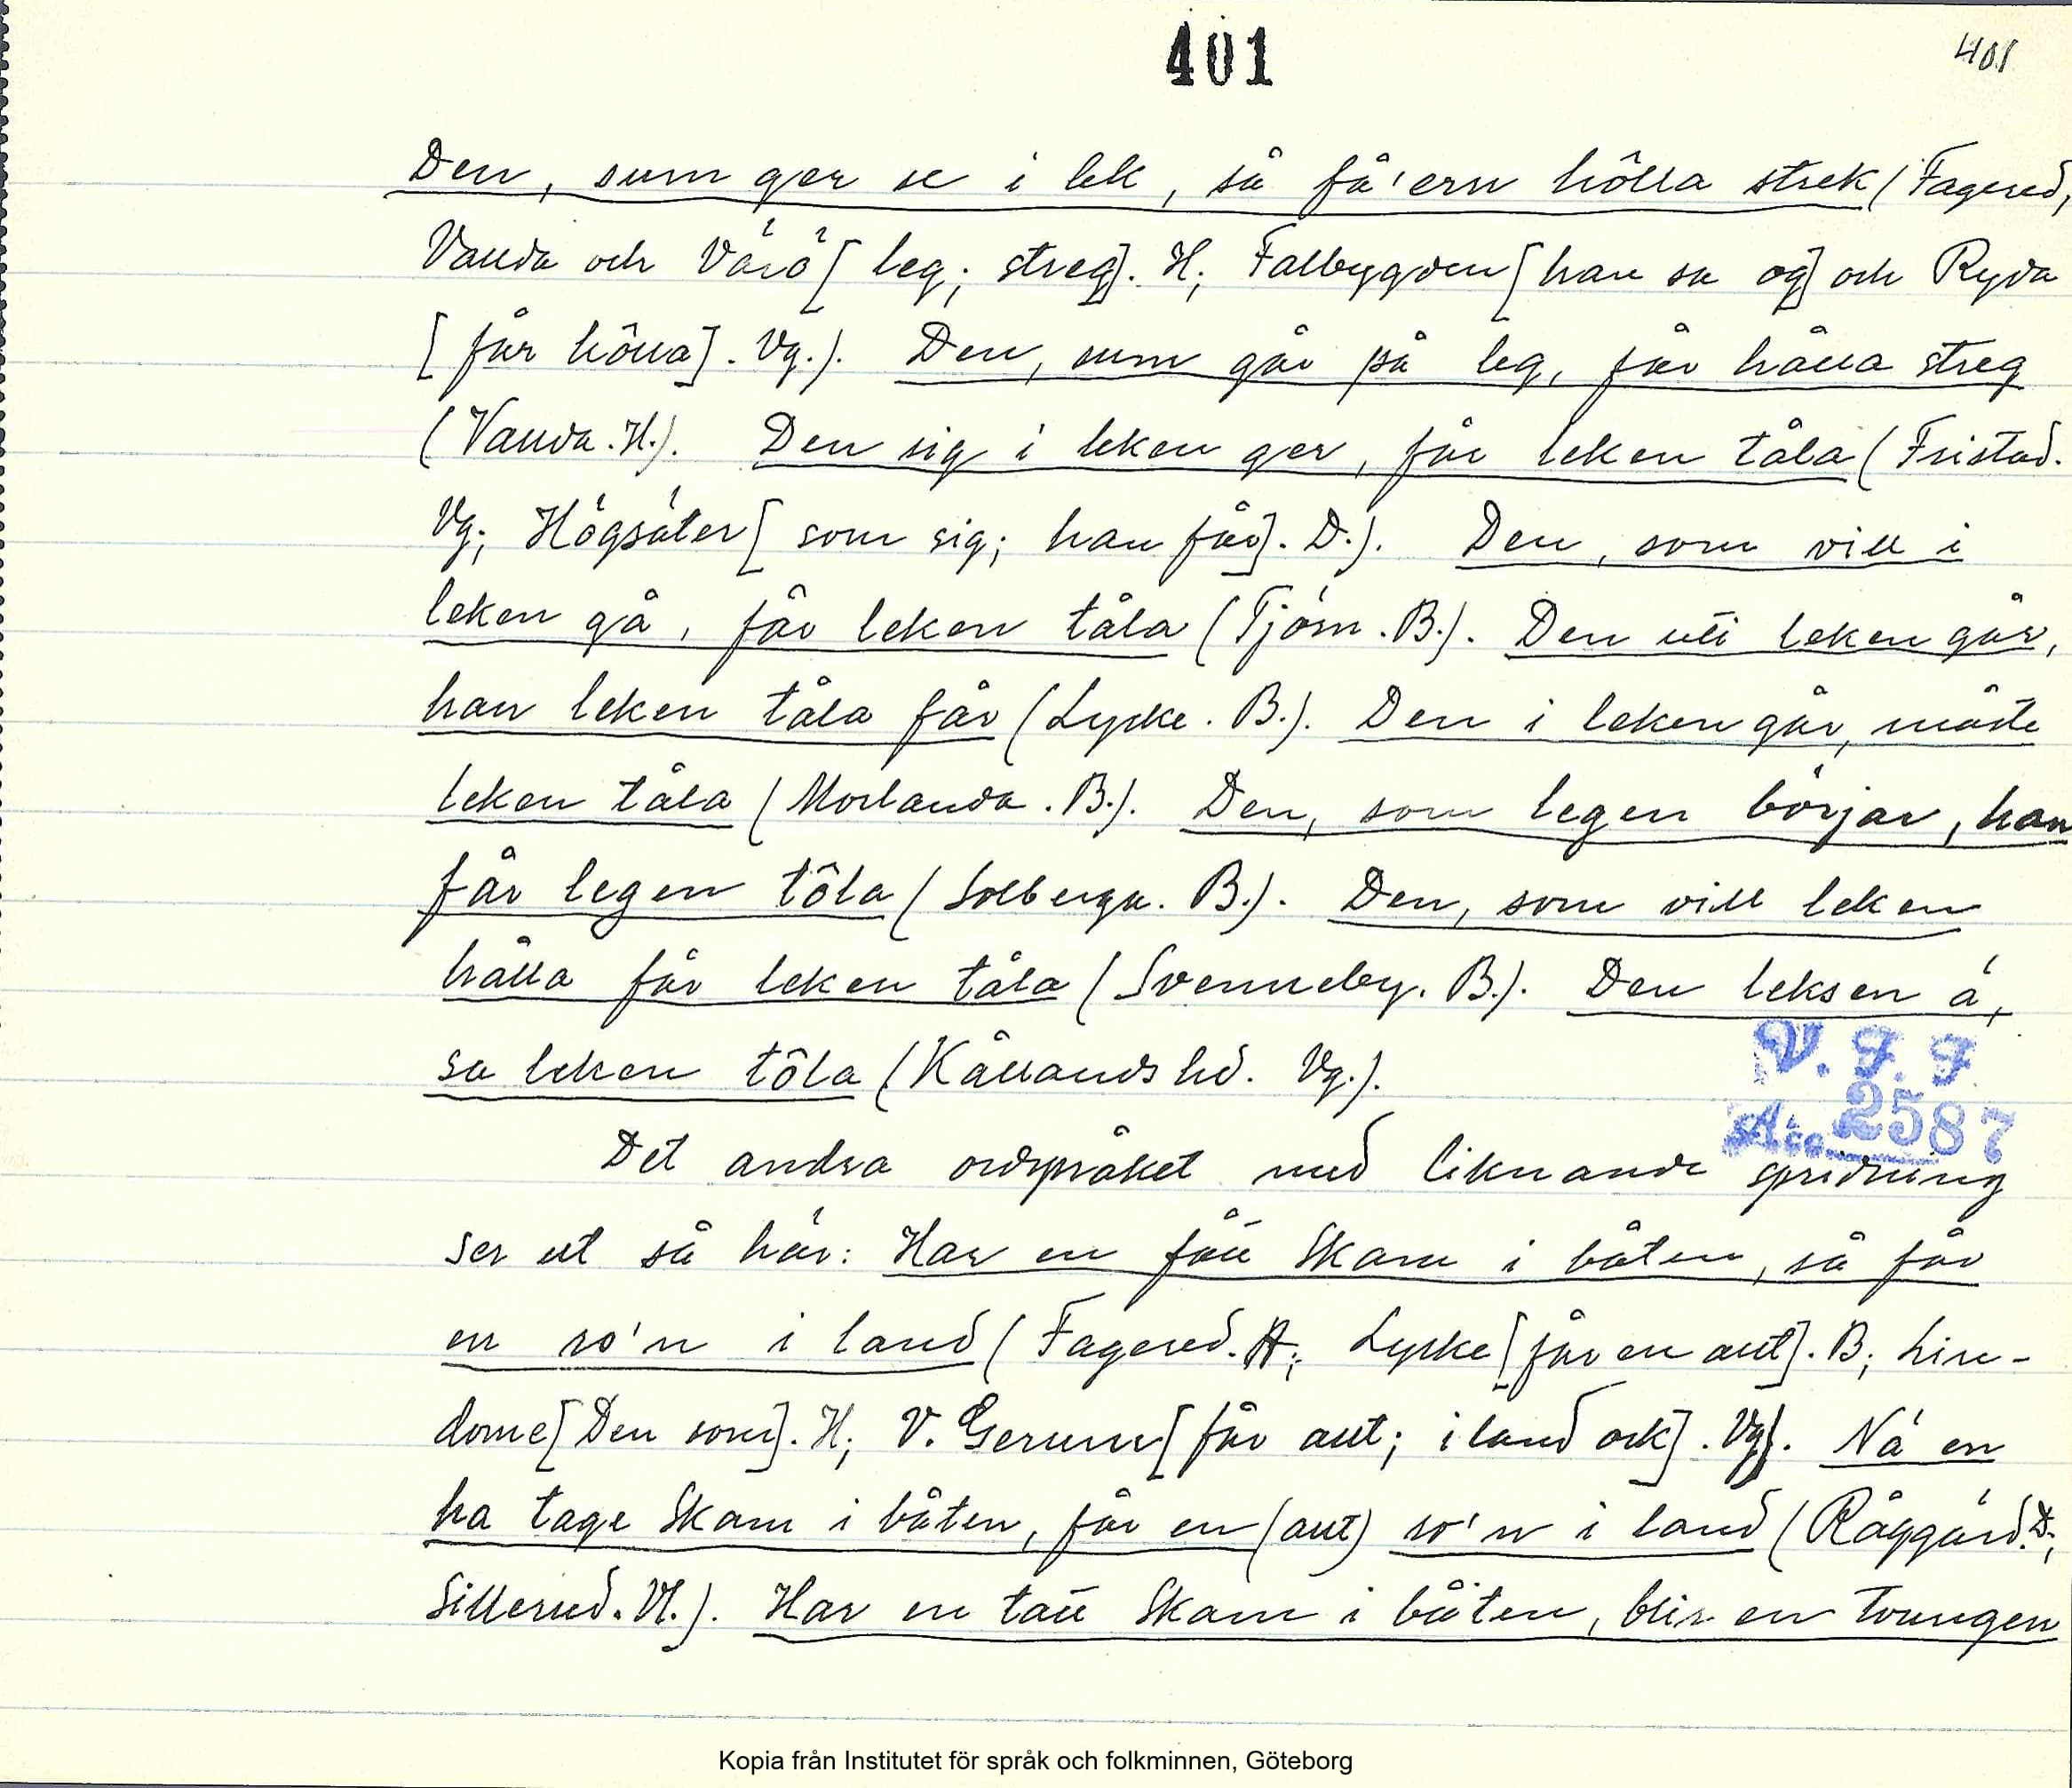 401
401
Den, sum ger se i lek, så få'ern hôlla strek (Fagered,
Vanda och Värö [leg; streg]. H; Falbygden [han sa og] och Ryda
[får hôlla]. Vg.). Den, sum går på leg, får hålla streg
(Vanda. H.). Den sig i leken ger, får leken tåla (Fristad.
Vg; Högsäter [som sig; han får]. D.). Den, som vill i
leken gå, får leken tåla (Tjörn. B.). Den uti leken går,
han leken tåla får (Lycke. B.). Den i leken går, måste
leken tåla (Morlanda. B.). Den, som legen börjar, han
får legen tôla (Solberga. B.). Den, som vill leken
hålla får leken tåla (Svenneby. B.). Den leksen ä,
sa leken tôla (Kållands hd. Vg.).
V. F. F
Acc. 2587
Det andra ordspråket med liknande spridning
ser ut så här: Har en fåu Skam i båten, så får
en ro'n i land (Fagered. H; Lycke [får en aut]. B; Lin-
dome [Den som]. H; V. Gerum [får aut; i land ock]. Vg). Nä en
ha tage Skam i båten, får en (aut) ro'n i land (Råggärd. D;
Sillerud. Vl.). Har en tau Skam i båten, blir en tvungen
Kopia från Institutet för språk och folkminnen, Göteborg